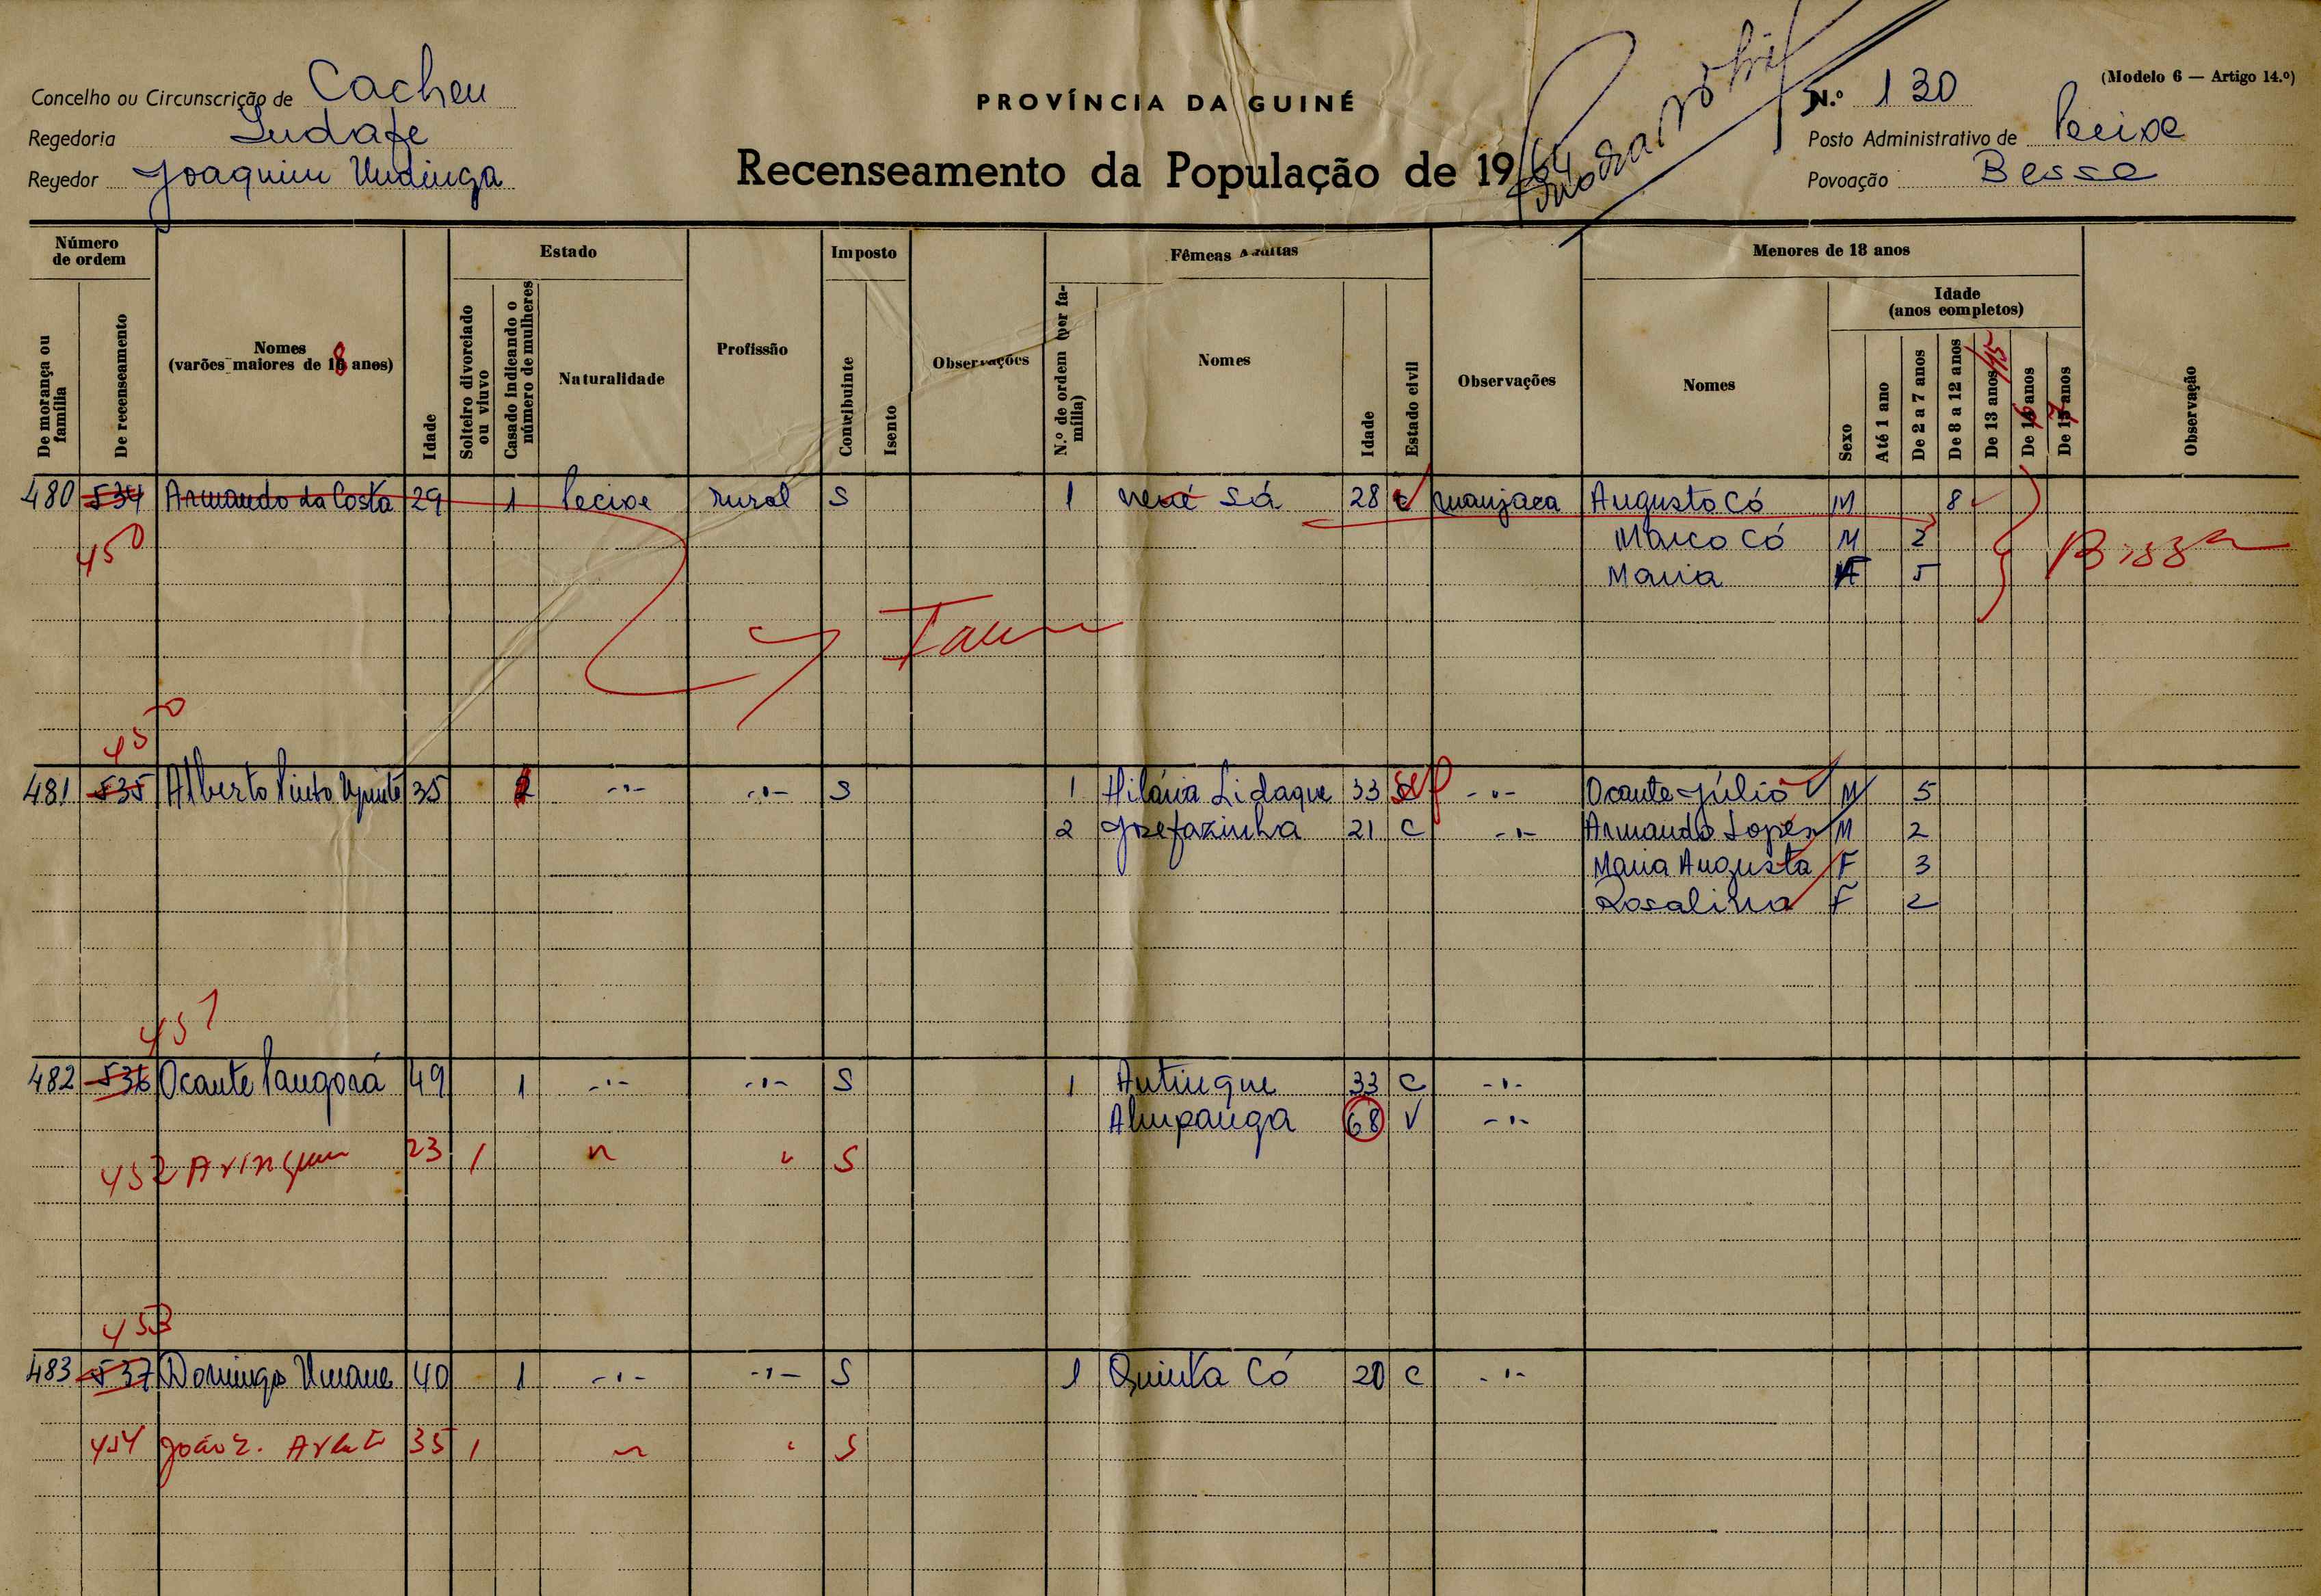 (Modelo 6 — Artigo 14.º)
Concelho ou Circunscrição de Cacheu
PROVÍNCIA DA GUINÉ
N.º 130
Regedoria
Posto Administrativo de Pecixe
Regedor Joaquim Undinga
Recenseamento da População de 1964
Povoação Besse
Número de ordem
Estado
Imposto
Fêmeas Adultas
Menores de 18 anos
Idade (anos completos)
De morança ou família
De recenseamento
Nomes (varões maiores de 18 anos)
Idade
Solteiro divorciado ou viuvo
Casado indicando o número de mulheres
Naturalidade
Profissão
Contribuinte
Isento
Observações
N.º de ordem (per família)
Nomes
Idade
Estado civil
Observações
Nomes
Sexo
Até 1 ano
De 2 a 7 anos
De 8 a 12 anos
De 13 anos 15
De 16 anos
De 17 anos
Observação
480 534 Armando da Costa 29 1 Pecixe rural S 1 nené Sá 28 c manjaca Augusto Có M 8
450 Marco Có M 2
Maria F 5
450
481 535 Alberto Pinto 35 S 1 Hilária Lidaque 33 -"- Ocante Júlio M 5
2 Josefazinha 21 C -"- Armando Lopes M 2
Maria Augusta F 3
Rosalina F 2
451
482 536 Ocante Pangorá 49 1 -"- -"- S 1 Antinque 33 C -"-
Ahupanga 68 V -"-
452 23 1 " " S
453
483 537 Domingo Umane 40 1 -"- -"- S 1 Quinta Có 20 C -"-
454 João 35 1 " " S